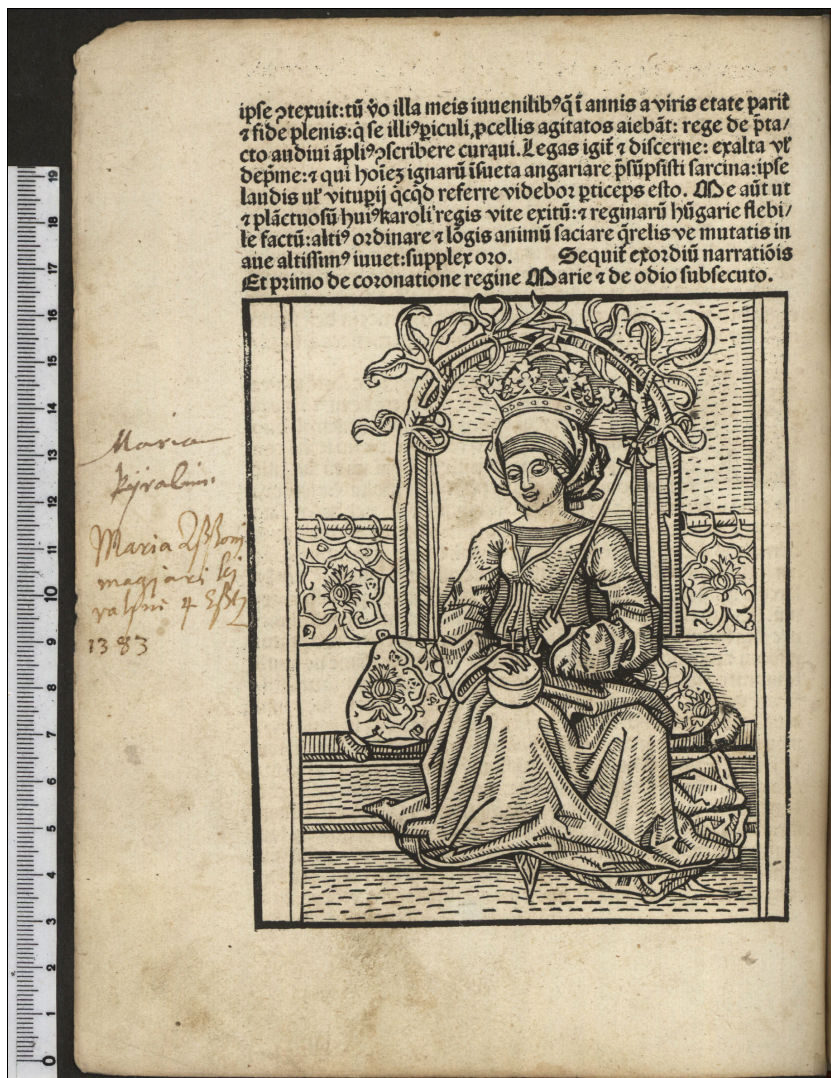 ipse ꝯtexuit: tũ v̊o illa meis iuuenilibꝰ q̃ ĩ annis a viris etate parit̃
⁊ fide plenis: q̇ se illiꝰ ꝑiculi ꝓcellis agitatos aiebãt: rege de p̃ta/
cto audiui ãpliꝰ ꝯscribere curaui. Legas igit̃ ⁊ discerne: exalta vł
dep̃me: ⁊ qui hoĩeꝫ ignarũ ĩsueta angariare p̃sũpsisti sarcina: ipse
laudis uł vituꝑij q̇cq̇d referre videbor ꝑticeps esto. Me aũt ut
⁊ plãctuosũ huiꝰ karoli regis vite exitũ: ⁊ reginarũ hũgarie flebi/
le factũ: altiꝰ ordinare ⁊ lõgis animũ saciare q̃relis ve mutatis in
aue altissimꝰ iuuet: supplex oro. Sequit̃ exordiũ narratiõis
Et primo de coronatione regine Marie ⁊ de odio subsecuto.
Maria
kyralini
Maria Aſſonj
magjari kj
ralſni
1383
19
18
17
16
15
14
13
12
11
10
9
8
7
6
5
4
3
2
1
0